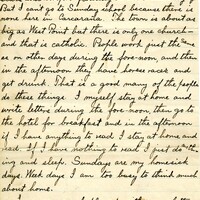 But I can't go to Sunday school because there is
none here in Carcarana. The town is about as
big as West Point but there is only one church—
and that is catholic. People work just the same
as on other days during the fore-noon, and then
in the afternoon they have horse races and
get drunk. That is a good many of the people
do these things. I myself stay at home and
write letters during the fore-noon, then go to
the hotel for breakfast and in the afternoon
if I have anything to read I stay at home and
read. If I have nothing to read I just do noth-
ing and sleep. Sundays are my homesick
days. Week days I am too busy to think much
about home.